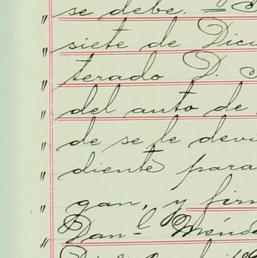 " se debe. =
" siete de Dici
" terado D.
" del auto de
" de se le devu
" diente para
" gan, y firm
Dan-l Ménde
"